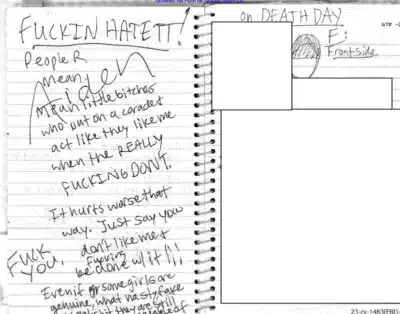 FUCKIN HATE IT!
People R
mean,
Aiden
Mean little bitches
who put on a carades
act like they like me
when the REALLY
FUCKING DON'T.
It hurts worse that
way. Just say you
don't like me &
fucking
be done w/ it!!!
FUCK
YOU,
Even if or some girls are
genuine, what nasty fake
they are still
on DEATH DAY
Front side